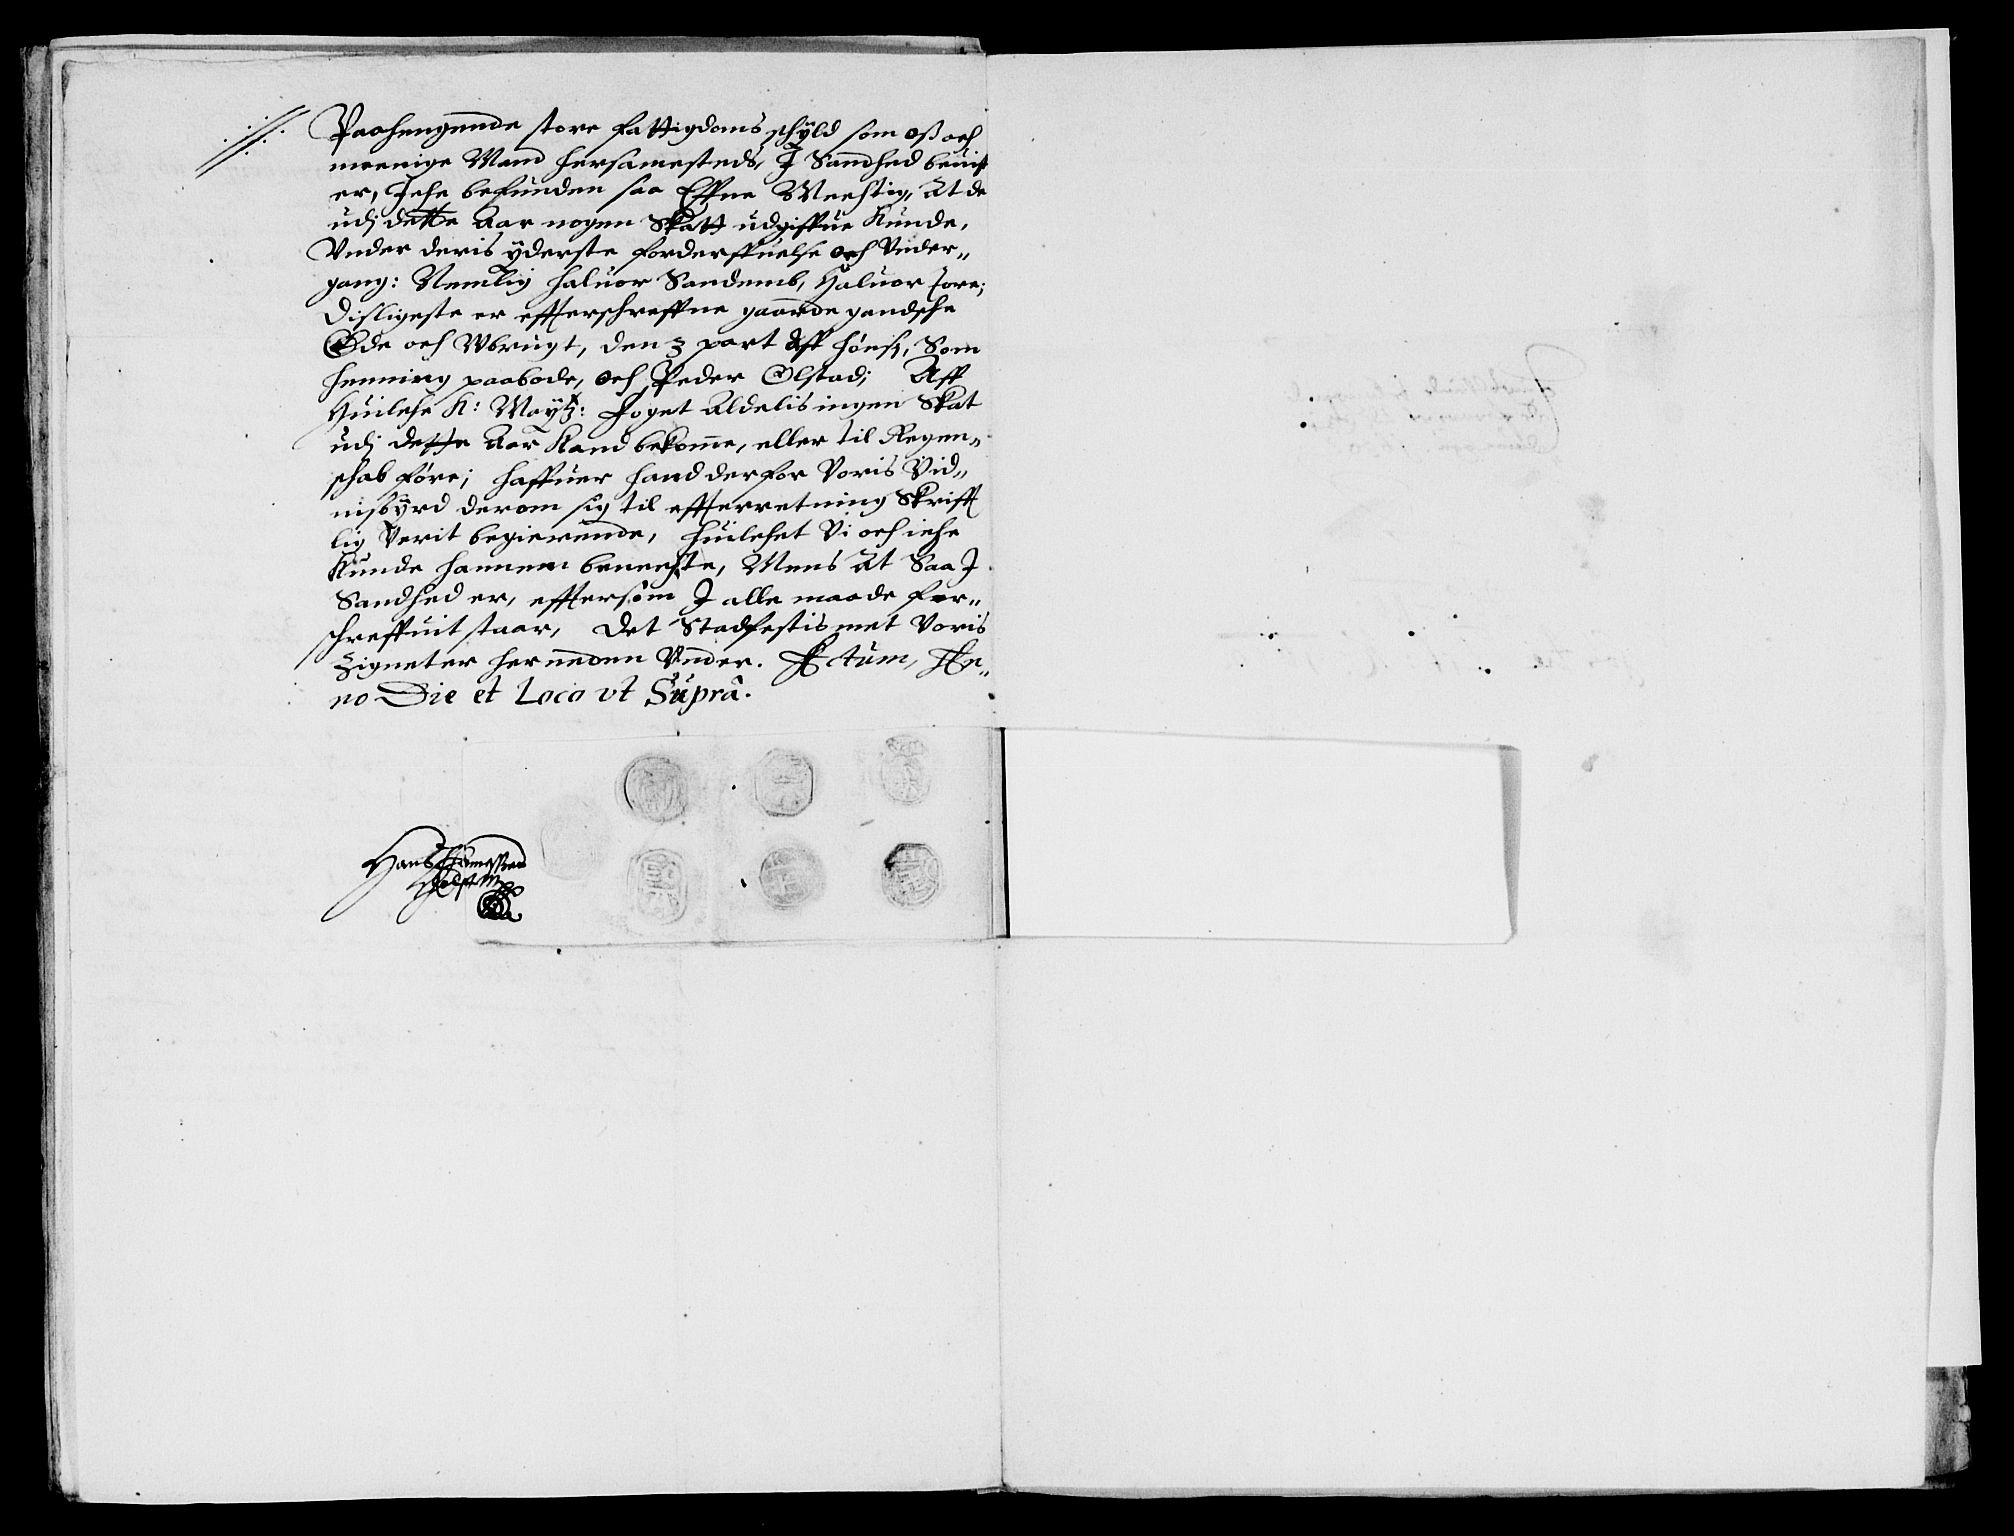 Paahengende store fattigdoms schÿld som oß och
meenige Mand hersamesteds, I Sandhed beuist
er, Iche befunden saa Effne Mechtig, At de
udj dette Aar nogen Skatt udgiffue Kunde,
Vnder deris ÿderste forderffuelse och Vnder„
gang: Nemlig Haluor Sandemb, Haluor Fore;
Disligeste er effterschreffne gaarde gandsche
Øde och Wbrugt, den 3 part aff Hönsj, Som
Henning paabode, och Peder Ølstad; Aff
Huilche K: Maytz: Foget Aldelis ingen Skat
udj dette Aar Kand bekomme, eller til Regen„
schab före; Haffuer hand derfor Voris Vid„
nisbÿrd derom sig til effterretning Skrifft
lig Verit begierende, Huilchet Vi och iche
Kunde hannem benechte, Mens At Saa I
Sandhed er, efftersom I alle maade for„
schreffuit staar, Det Stadfestis met Voris
Zigneter her neden Vnder. Actum, An„
no Die et Loco vt Suprâ.
Hans